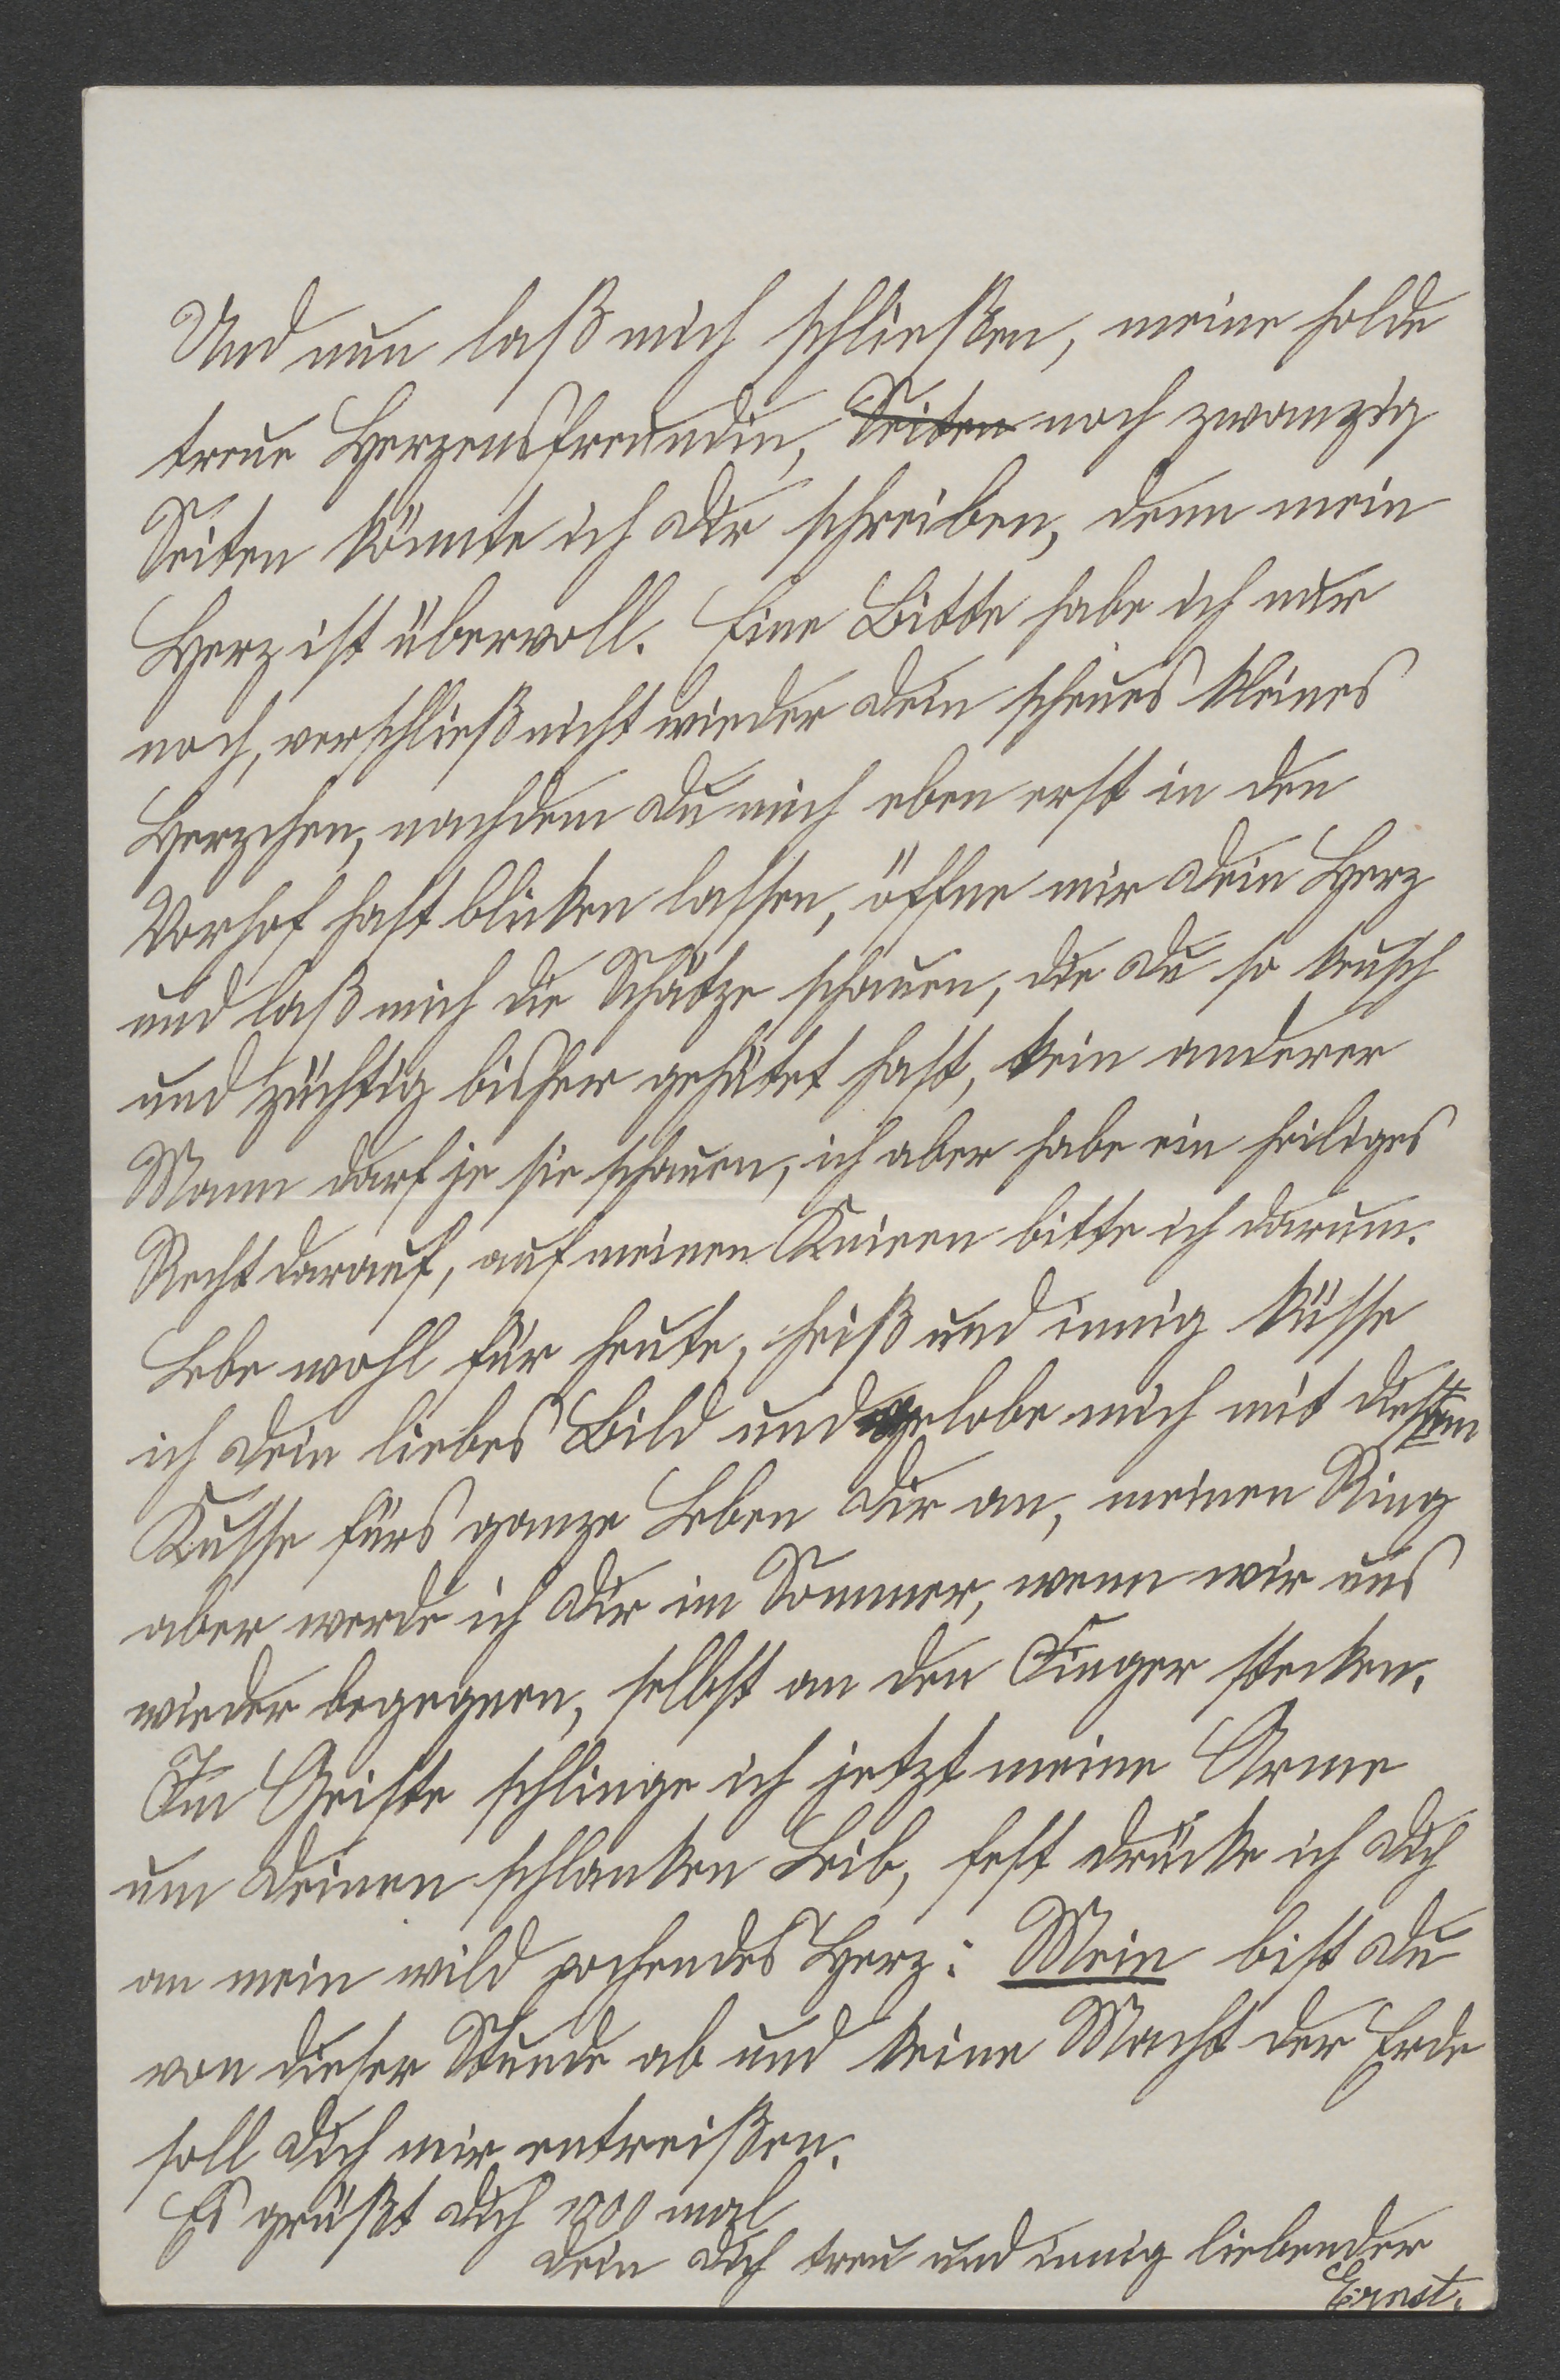 Und nun laß mich schließen, meine holde
treue Herzensfreundin, ~~Seiten~~ noch zwanzig
Seiten könnte ich Dir schreiben, denn mein
Herz ist übervoll. Eine Bitte habe ich nur
noch, verschließ nicht wieder Dein scheues kleines
Herzchen, nachdem Du mich eben erst in den
Vorhof hast blicken lassen, öffne mir Dein Herz
und laß mich die Schätze schauen, die Du so keusch
und züchtig bisher gehütet hast, kein anderer
Mann darf je sie schauen, ich aber habe ein heiliges
Recht darauf, auf meinen Knieen bitte ich darum.
Lebe wohl für heute, heiß und innig küsse
ich Dein liebes Bild und gelobe mich mit diesem
Kusse fürs ganze Leben Dir an, meinen Ring
aber werde ich Dir im Sommer, wenn wir uns
wieder begegnen, selbst an den Finger stecken.
Im Geiste schlinge ich jetzt meine Arme
um Deinen schlanken Leib, fest drücke ich Dich
an mein wild pochendes Herz: Mein bist Du
von dieser Stunde ab und keine Macht der Erde
soll Dich mir entreißen.
Es grüßt Dich 1000 mal
Dein Dich treu und innig liebender
Ernst.